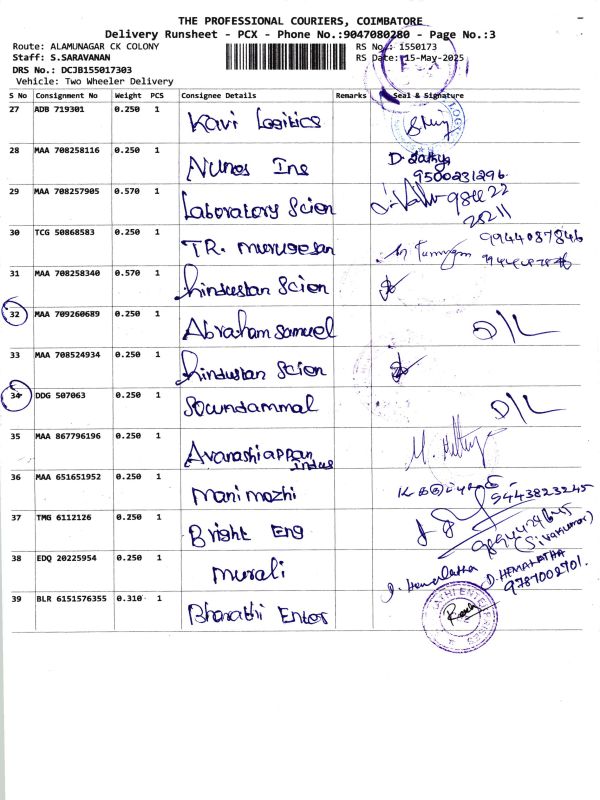 THE PROFESSIONAL COURIERS, COIMBATORE
Delivery Runsheet - PCX - Phone No.:9047080280 - Page No.:3
Route: ALAMUNAGAR CK COLONY
RS No.: 1550173
Staff: S.SARAVANAN
RS Date: 15-May-2025
DRS No.: DCJB155017303
Vehicle: Two Wheeler Delivery
S No Consignment No Weight PCS Consignee Details Remarks Seal & Signature
27 ADB 719301 0.250 1 Kavi Logitics
28 MAA 708258116 0.250 1 Nunes Ins D. Sathya
9500231296
29 MAA 708257905 0.570 1 Laboratory Scion
30 TCG 50868583 0.250 1 TR. murugesan 9944087846
31 MAA 708258340 0.570 1 hindustan Scion
32 MAA 709260689 0.250 1 Abraham Samuel D/L
33 MAA 708524934 0.250 1 hindustan Scion
34 DDG 507063 0.250 1 Soundammal D/L
35 MAA 867796196 0.250 1 Avanashiappan
Indus
36 MAA 651651952 0.250 1 manimozhi 9443823245
37 TMG 6112126 0.250 1 Bright Eng (Sivakumar)
38 EDQ 20225954 0.250 1 murali D. Hemalatha D. HEMALATHA
9787002701.
39 BLR 6151576355 0.310 1 Bharathi Enter